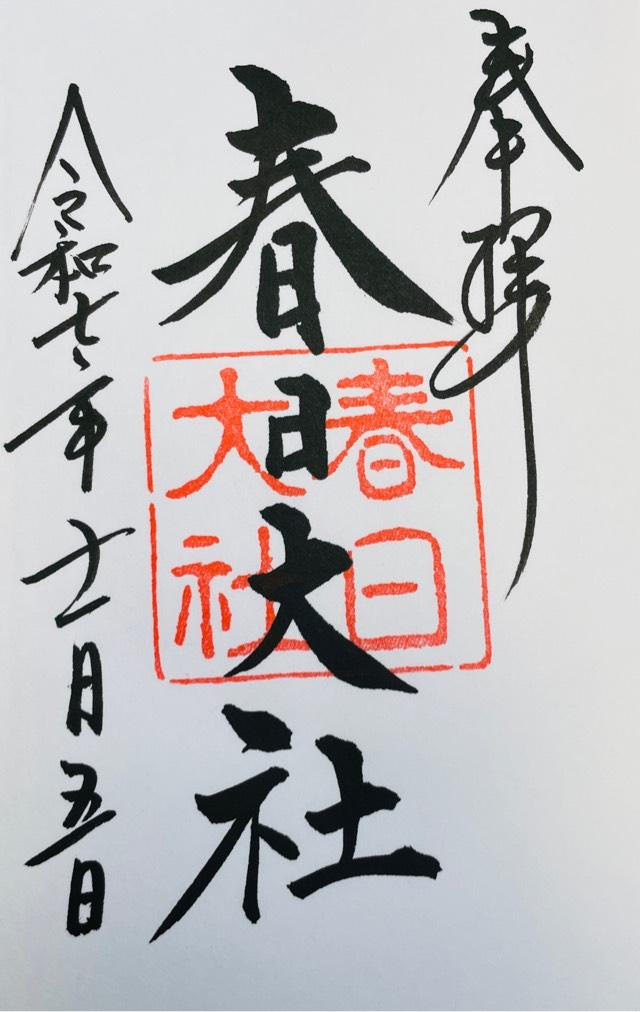 奉拝
春日大社
春日
大社
令和七年十一月五日